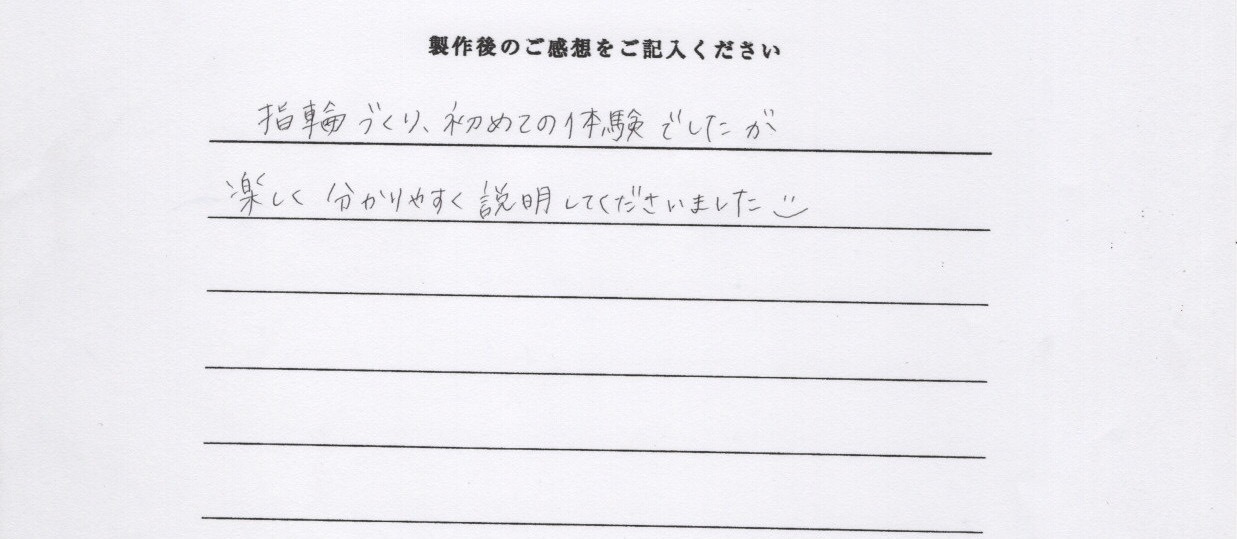 製作後のご感想をご記入ください
指輪づくり、初めての体験でしたが
楽しく分かりやすく説明してくださいました